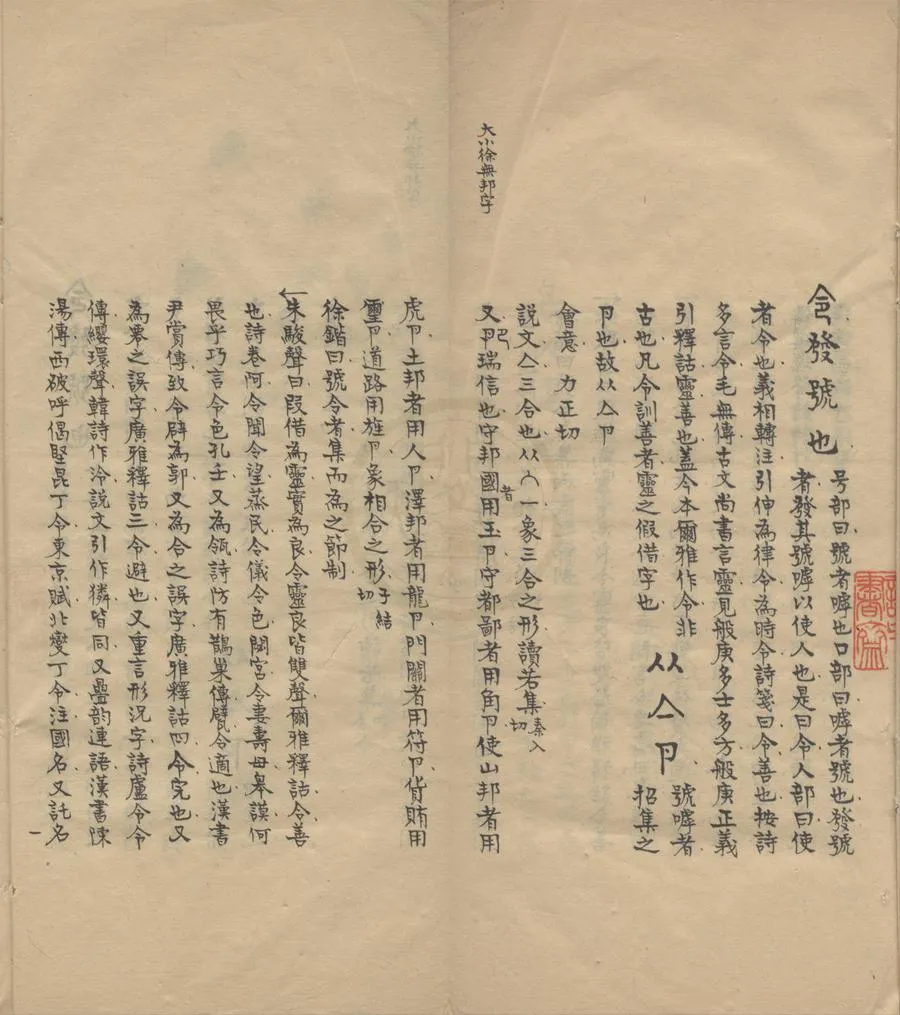 大小徐無邦字
令發號也
号部曰號者嘑也口部曰嘑者號也發號
者發其號嘑以使人也是曰令人部曰使
者令也義相轉注引伸為律令為時令詩箋曰令善也按詩
多言令毛無傳古文尚書言靈見般庚多士多方般庚正義
引釋詁靈善也蓋今本爾雅作令非
古也凡令訓善者靈之假借字也
从亼卪
號嘑者
招集之
卪也故从亼卪
會意 力正切
説文亼三合也从入一象三合之形讀若集 秦入切
又卪瑞信也守邦國者用玉卪守都鄙者用角卪使山邦者用
虎卪土邦者用人卪澤邦者用龍卪門關者用符卪貨賄用
璽卪道路用旌卪象相合之形 子結切
徐鍇曰號令者集而為之節制
朱駿聲曰叚借為靈實為良令靈良皆雙聲爾雅釋詁令善
也詩卷阿令聞令望蒸民令儀令色閟宮令妻壽母皋謨何
畏乎巧言令色孔壬又為瓴詩防有鵲巢傳甓令適也漢書
尹賞傳致令辟為郭又為合之誤字廣雅釋詁四令完也又
為零之誤字廣雅釋詁三令避也又重言形況字詩盧令令
傳纓環聲韓詩作泠説文引作獜皆同又疊韵連語漢書陳
湯傳西破呼偈堅昆丁令東京賦北燮丁令注國名又託名
一